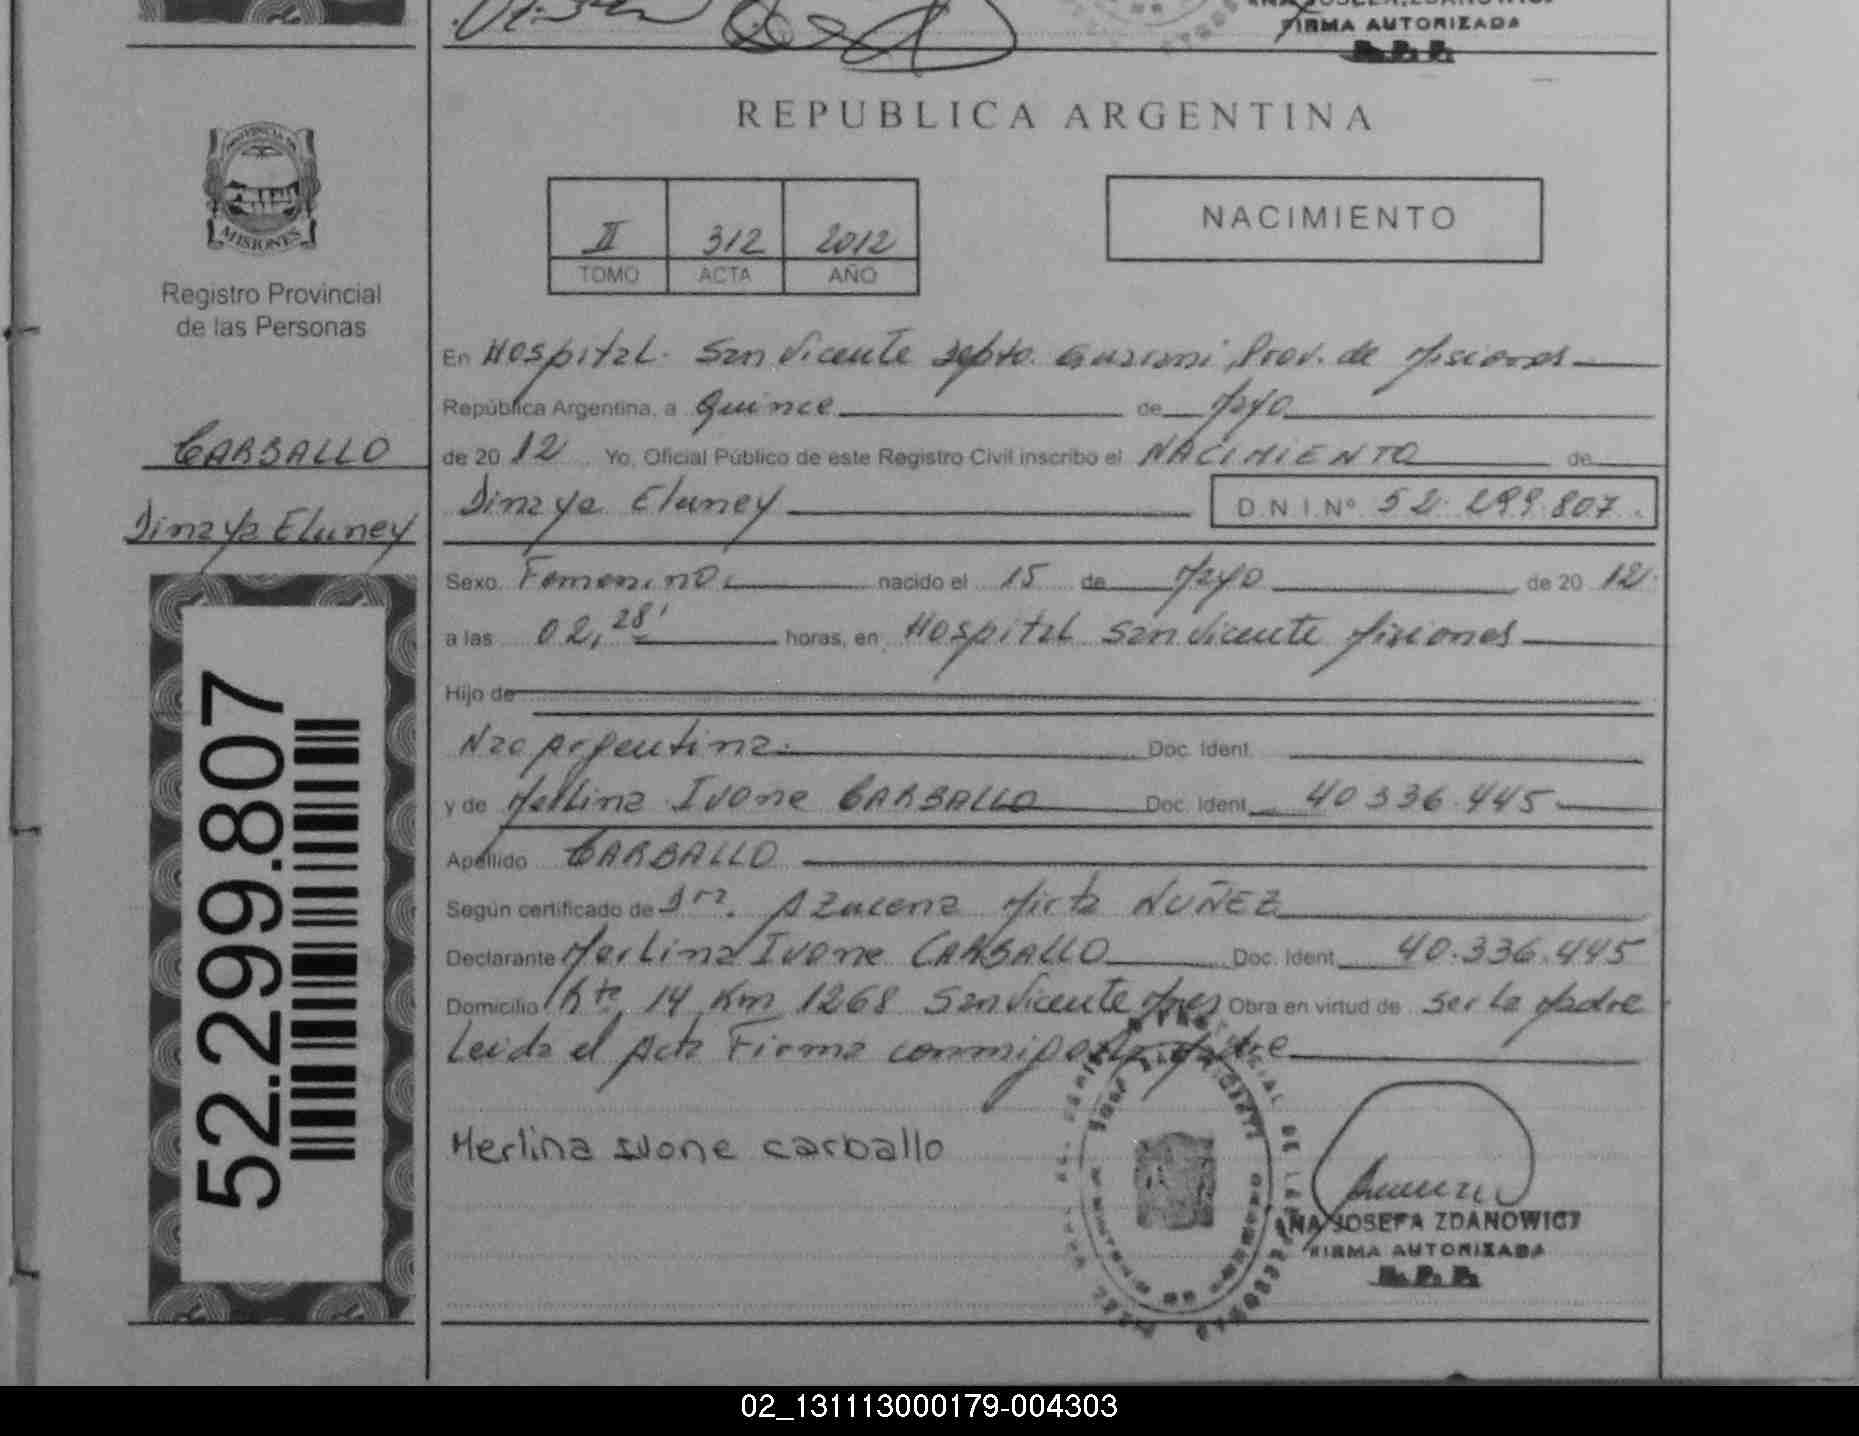 FIRMA AUTORIZADA
REPUBLICA ARGENTINA
PROVINCIA DE
MISIONES
Registro Provincial
de las Personas
II 312 2012
TOMO ACTA AÑO
NACIMIENTO
CARBALLO
Dinaya Eluney
52.299.807
En Hospital San Vicente Depto. Guarani, Prov. de Misiones
República Argentina, a Quince de Mayo
de 20 12 Yo, Oficial Público de este Registro Civil inscribo el NACIMIENTO de
Dinaya Eluney D.N.I.Nº 52.299.807
Sexo Femenino nacido el 15 de Mayo de 20 12
a las 02,28' horas, en Hospital San Vicente Misiones
Hijo de
Nac Argentina Doc. Ident.
y de Merlina Ivone CARBALLO Doc. Ident. 40 336.445
Apellido CARBALLO
Según certificado de Dra. Azucena Mirta NUÑEZ
Declarante Merlina Ivone CARBALLO Doc. Ident. 40.336.445
Domicilio Rta 14 Km 1268 San Vicente Mnes Obra en virtud de ser la Madre
Leida el Acta Firma conmigo la Madre
Merlina Ivone carballo
ANA JOSEFA ZDANOWICZ
FIRMA AUTORIZADA
02_131113000179-004303